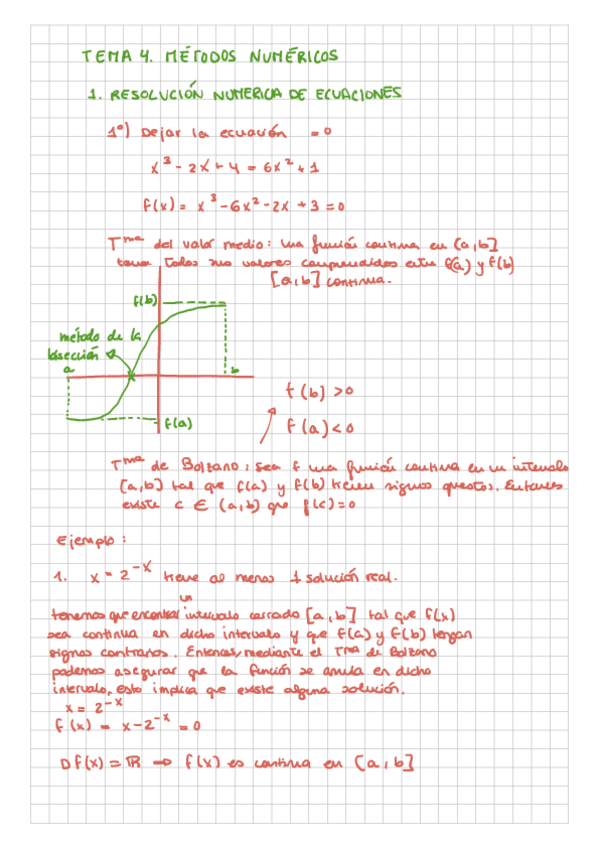 TEMA 4. MÉTODOS NUMÉRICOS
1. RESOLUCIÓN NUMERICA DE ECUACIONES
1º) Dejar la ecuación = 0
x³ - 2x + 4 = 6x² + 1
f(x) = x³ - 6x² - 2x + 3 = 0
Tma del valor medio: una función continua en [a,b]
toma todos sus valores comprendidos entre f(a) y f(b)
[a,b] continua.
f(b)
método de la
bisección
a
b
f(a)
f(b) > 0
f(a) < 0
Tma de Bolzano: sea f una función continua en un intervalo
[a,b] tal que f(a) y f(b) tienen signos opuestos. Entonces
existe c ∈ (a,b) que f(c) = 0
Ejemplo:
1. x = 2^-x tiene al menos 1 solución real.
un
tenemos que encontrar intervalo cerrado [a,b] tal que f(x)
sea continua en dicho intervalo y que f(a) y f(b) tengan
signos contrarios. Entonces, mediante el Tma de Bolzano
podemos asegurar que la función se anula en dicho
intervalo, esto implica que existe alguna solución.
x = 2^-x
f(x) = x - 2^-x = 0
Df(x) = ℝ ⇒ f(x) es continua en [a,b]